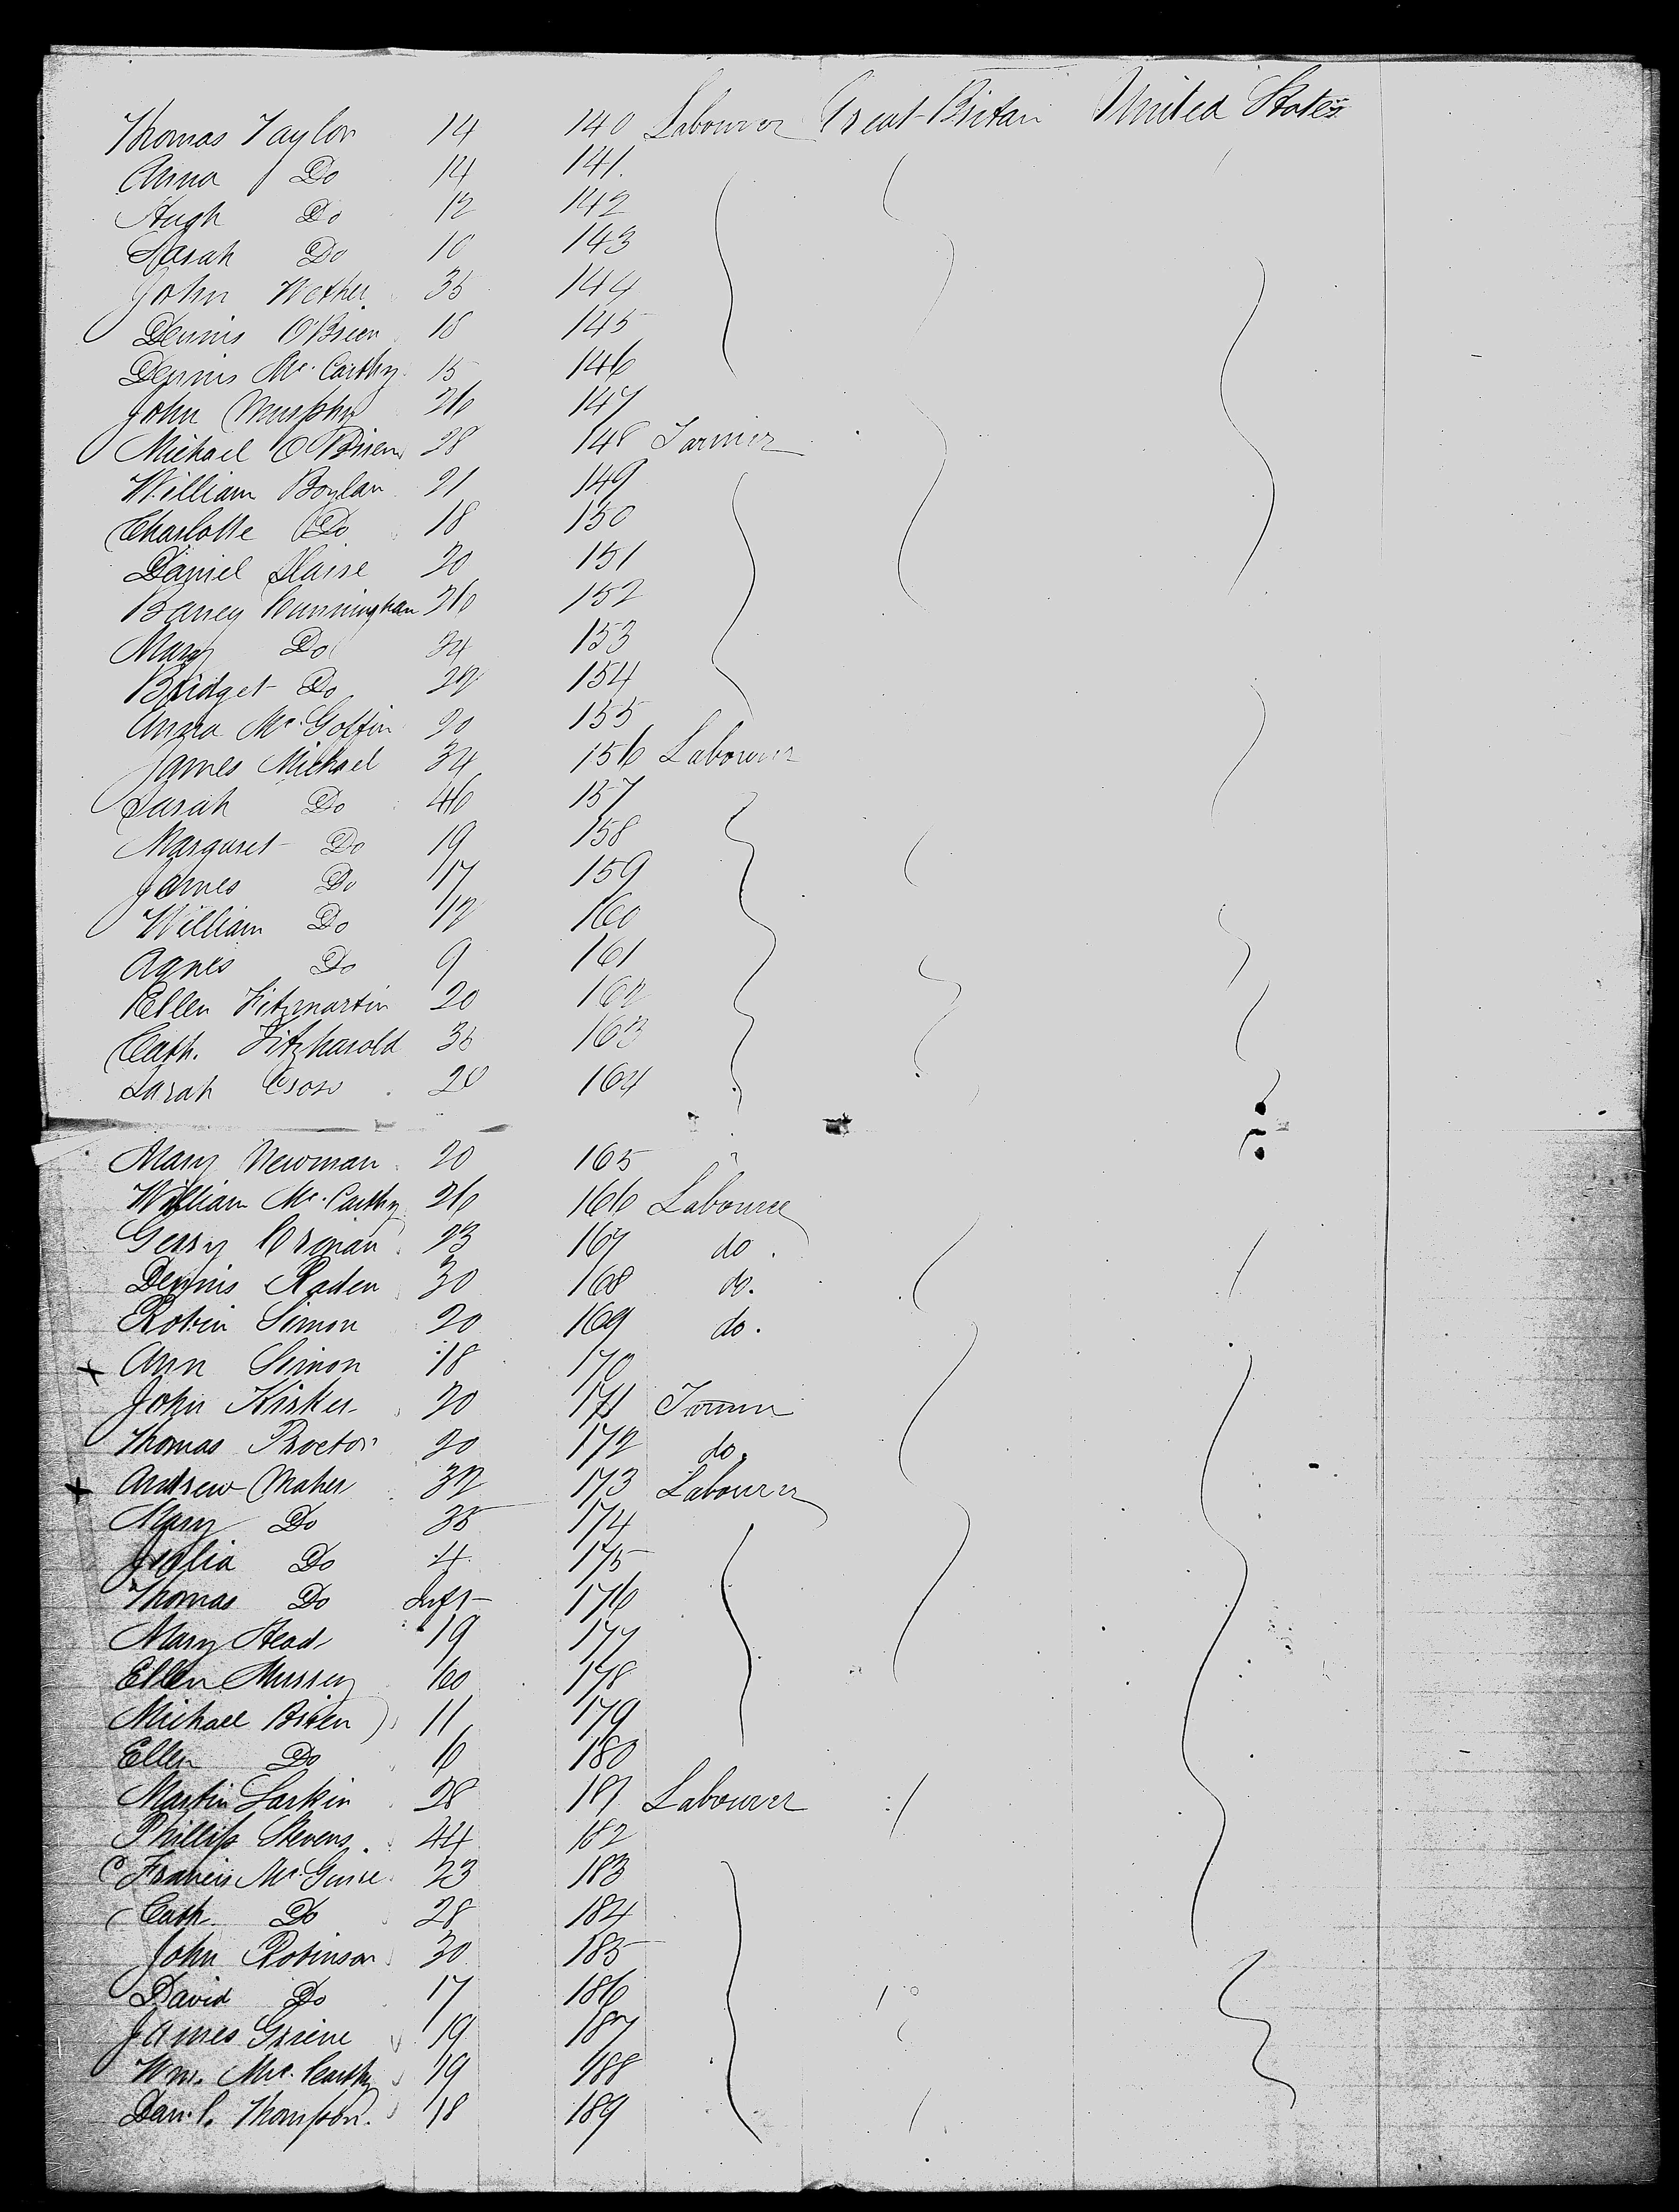 Thomas Taylor 14 140 Labourer Great-Britain United States
Anna Do 14 141.
Hugh Do 12 142
Sarah Do 10 143
John 35 144
Dennis O'Brien 18 145
Dennis Mc. Carthy 15 146
John Murphy 26 147
Michael O'Brien 28 148 Farmer
William Boylan 21 149
Charlotte Do 18 150
Daniel 20 151
Barney Cunningham 26 152
Mary Do 24 153
Bridget Do 22 154
Anna Mc. Goffin 20 155
James Michael 34 156 Labourer
Sarah Do 46 157
Margaret Do 19 158
James Do 17 159
William Do 12 160
Agnes Do 9 161
Ellen Fitzmartin 20 162
Cath. Fitzharold 35 163
Sarah 20 164
Mary Newman 20 165
William Mc. Carthy 26 166 Labourer
Gerry 23 167 do.
Dennis Raden 30 168 do.
Robin Simon 20 169 do.
x Ann Simon 18 170
John Kirker 20 171 Farmer
Thomas Proctor 20 172 do.
x Andrew Maher 32 173 Labourer
Mary Do 35 174
Julia Do 4 175
Thomas Do Inft 176
Mary Head 19 177
Ellen 60 178
Michael 11 179
Ellen Do 6 180
Martin Larkin 28 181 Labourer
Phillip Stevens 44 182
Francis Mc. Guire 23 183
Cath. Do 28 184
John Robinson 30 185
David Do 17 186
James Griene 19 187
Wm. Mc. Carthy 19 188
Danl. Thompson. 18 189